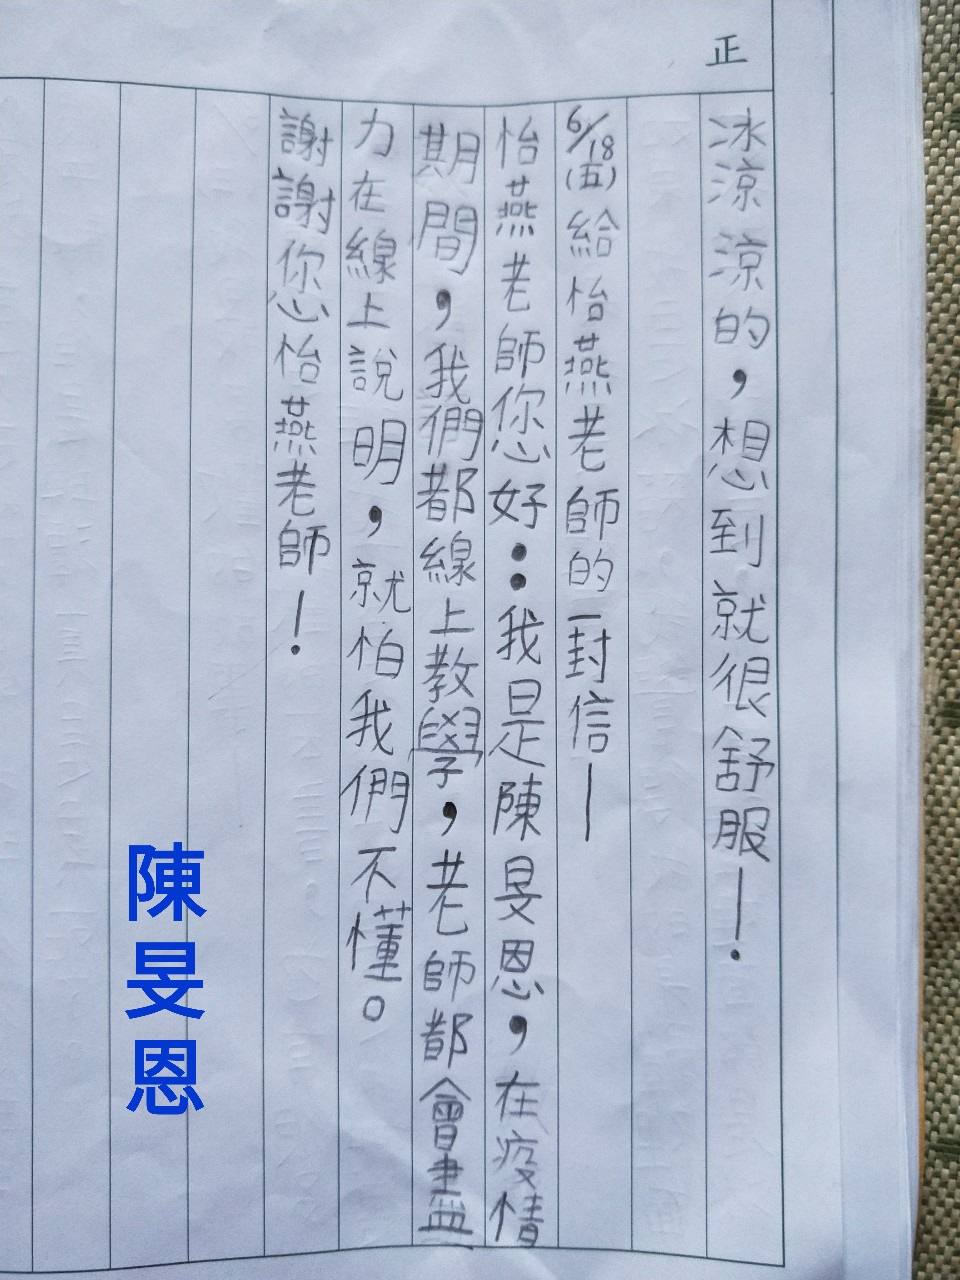 正
冰涼涼的，想到就很舒服！
6/18(五)給怡燕老師的一封信—
怡燕老師您好：我是陳旻恩，在疫情
期間，我們都線上教學，老師都會盡
力在線上說明，就怕我們不懂。
謝謝您怡燕老師！
陳旻恩